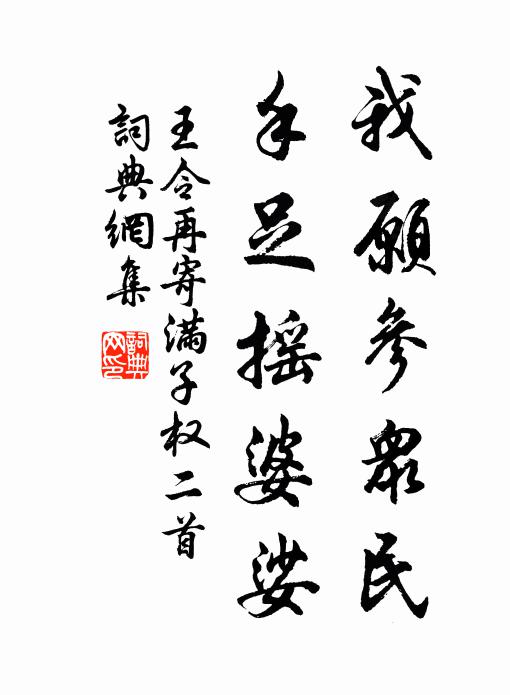 我願參衆民
手足搖婆娑
王令再寄滿子权二首
詞典網集
詞典网印